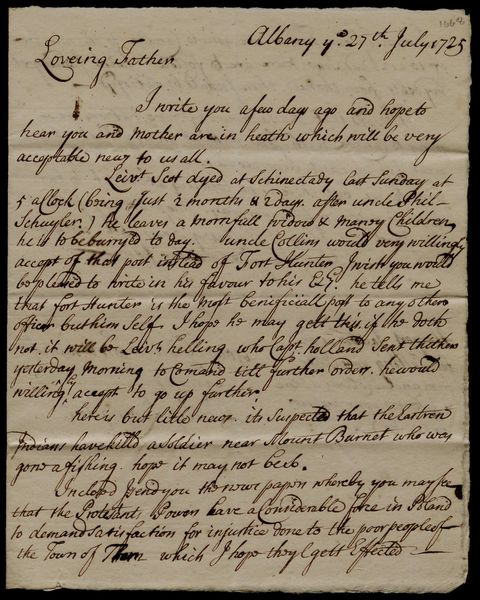 1668
Albany ye. 27th July 1725
Loveing Father
I write you a fuo days ago and hope to
hear you and mother are in heath which will be very
acceptable news to us all.
Leivt Scot dyed at Schinectady last Sunday at
5 a Clock (being Just 2 months & 2 days. after uncle Phil-
Schuyler.) He leaves a mornfull Widow & manny Children
he is to be burryd to day. uncle Collins would very willingly
accept of that post instead of Fort Hunter I wish you would
be pleased to write in his favour to his Ex. he tells me
that fort Hunter is the most beneficiall post to any other
officer but him Self. I hope he may gett this. if he doth
not. it will be Leivt helling who Capt. holland Sent thither
yesterday morning to Comand till further order. he would
willingly accept to go up further.
here is but litle news. its Suspected that the Eastren
Indians have killd a Soldier near Mount Burnet who was
gone a fishing. hope it may not be so.
Inclosd I send you the news papers whereby you may see
that the Protestant Powers have a Considerable force in Poland
to demand Satisfaction for injustice done to the poor people of
the Town of Thorn which I hope they l gett Effected